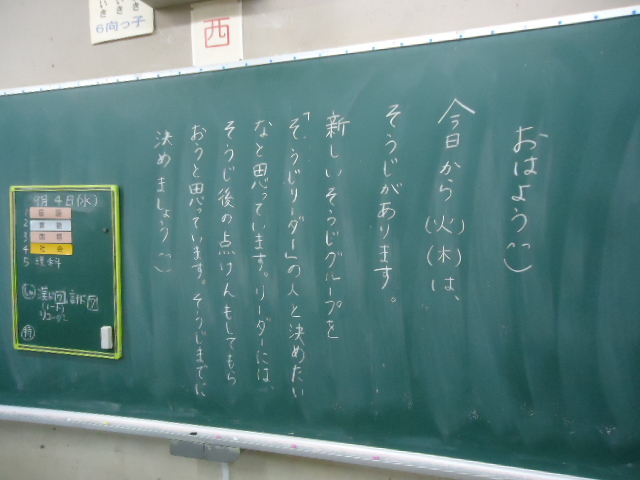 おはよう
今日から(火)(木)は、
そうじがあります。
新しいそうじグループを
「そうじリーダー」の人と決めたい
なと思っています。リーダーには、
そうじ後の点けんもしてもら
おうと思っています。そうじまでに
決めましょう
西
いき いき
6向っ子
9月4日(水)
1 国語
2 算数
3
4 社会
5 理科
漢に
特